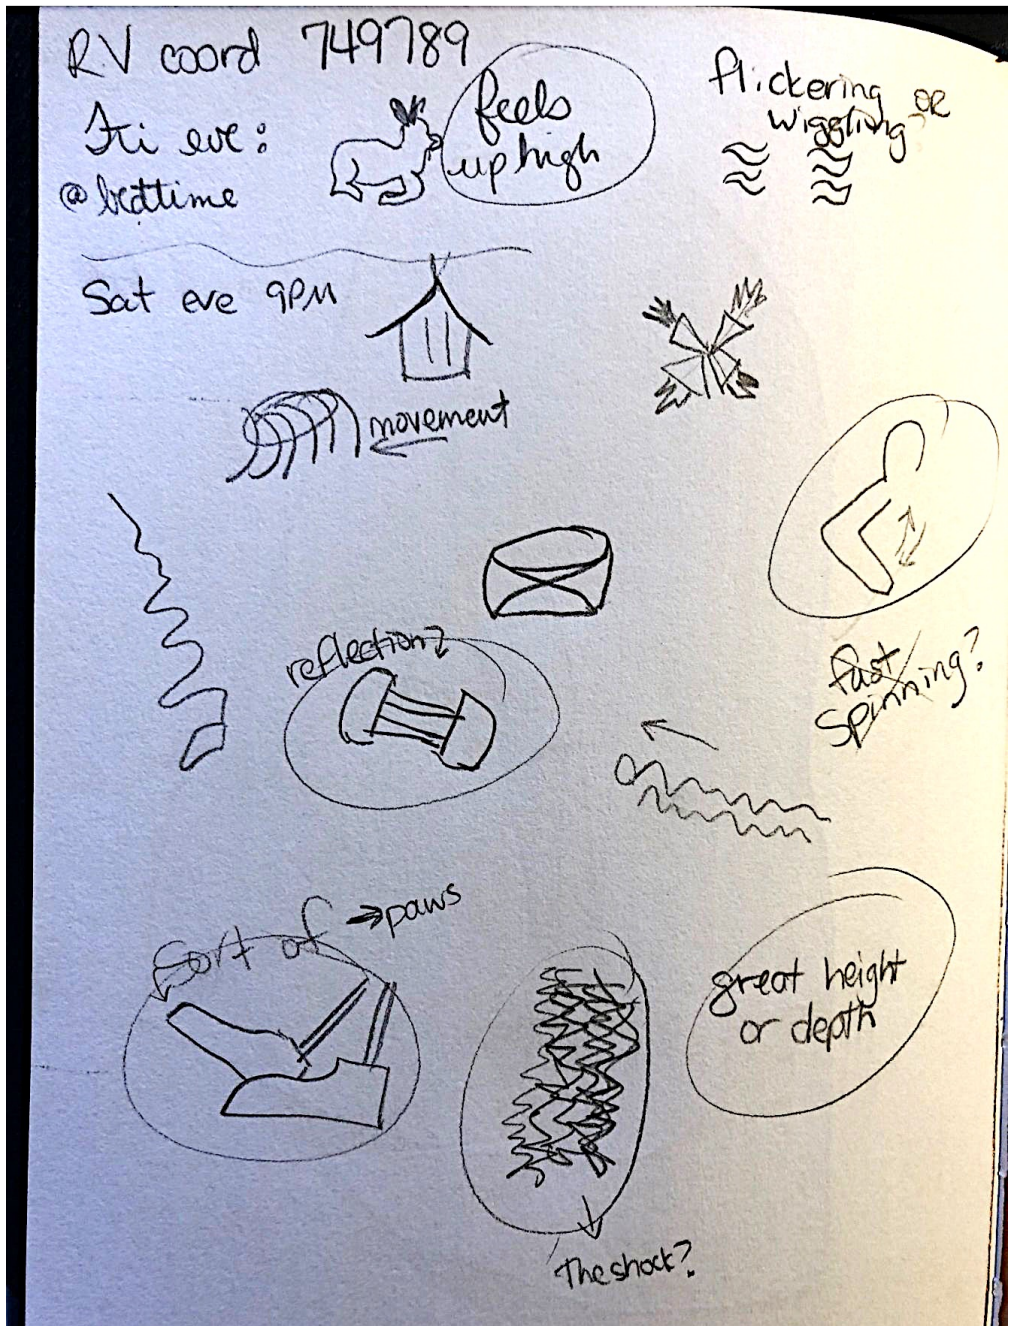 RV coord 749789
Fri eve:
@ bedtime
feels
up high
flickering OR
wiggling?
Sat eve 9PM
movement
reflection?
fast
spinning?
Sort of → paws
great height
or depth
The shock?